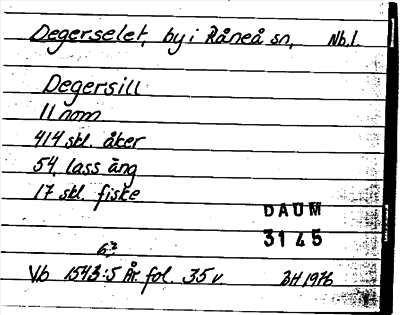 Degerselet, by i Råneå sn, Nb.l.
Degersill
11 nom
414 skl. åker
54 lass äng
17 skl. fiske
DAUM
3145
6?
Vb 1543:5 År fol. 35 v BH 1976